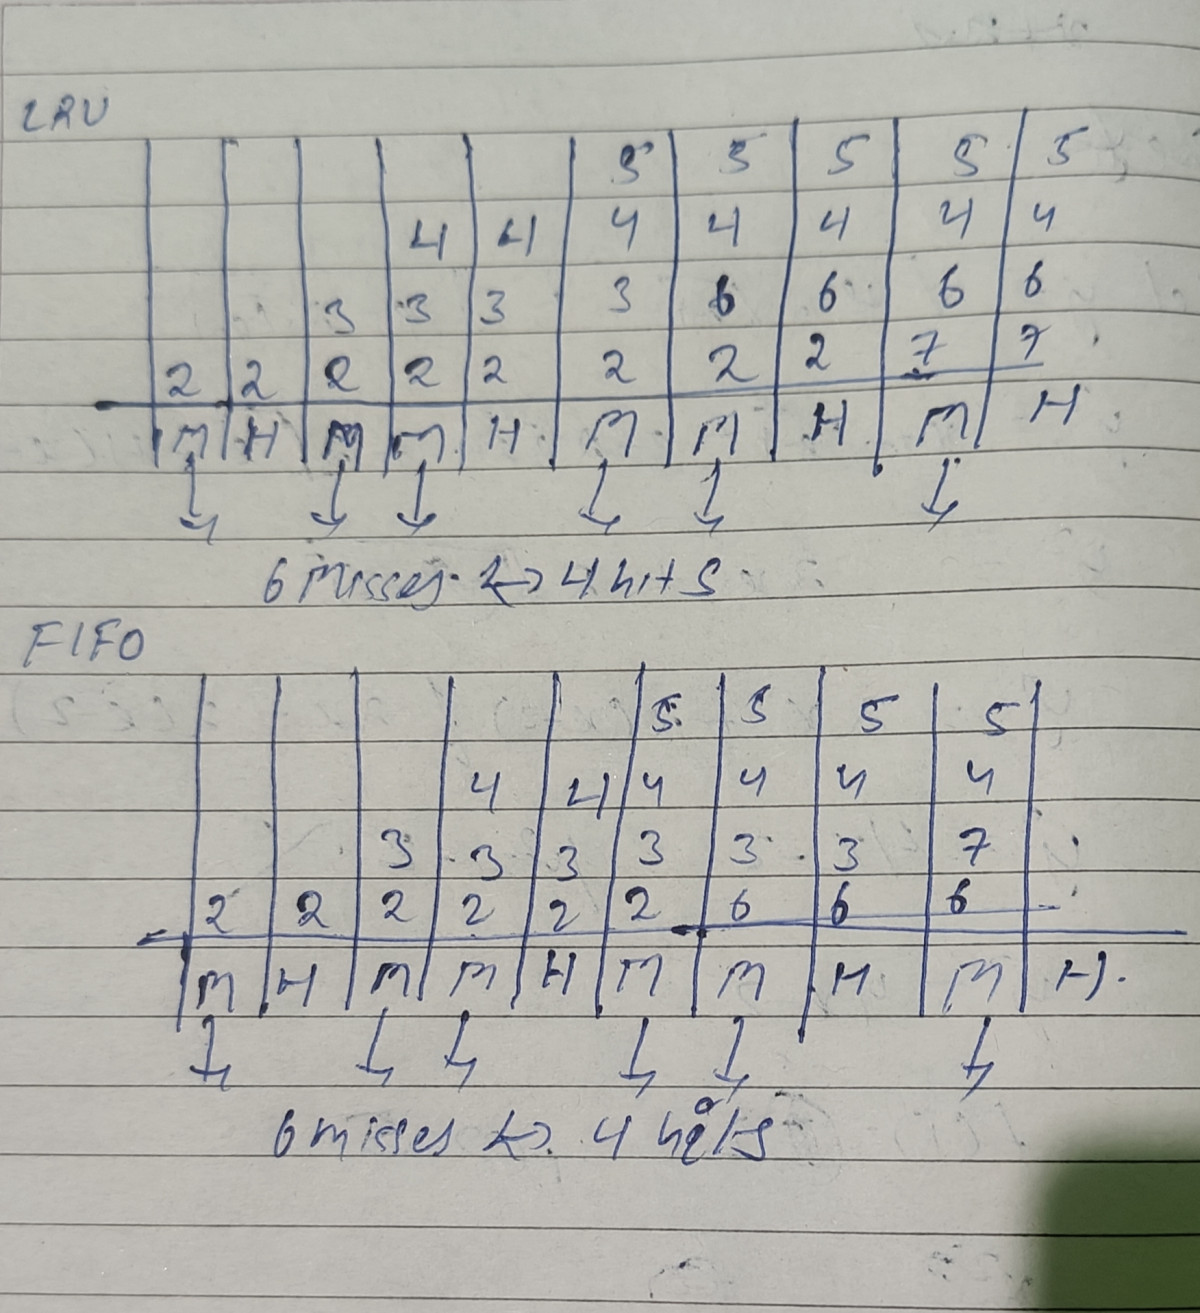 LRU
5 5 5 5 5
4 4 4 4 4 4 4
3 3 3 3 6 6 6 6
2 2 2 2 2 2 2 2 7 7
M H M M H M M H M H
6 Misses ↔ 4 hits
FIFO
5 5 5 5
4 4 4 4 4 4
3 3 3 3 3 3 7
2 2 2 2 2 2 6 6 6
M H M M H M M H M H.
6 misses ↔ 4 hits